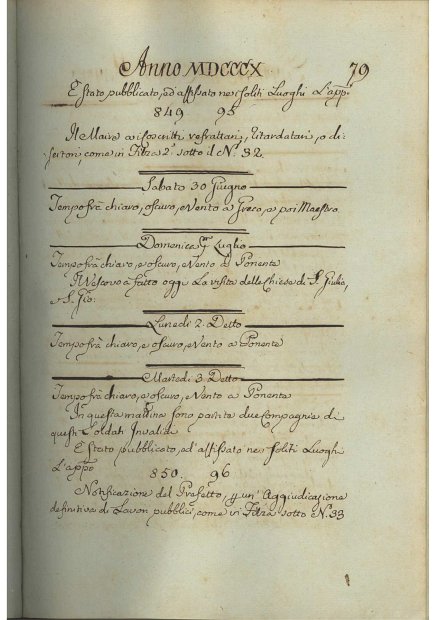 Anno MDCCCX 79
È stato pubblicato, ed affissato nei soliti Luoghi L'app:o
849 95
Il Maire ai foscritti refrattari, Ritardatari, o di=
sertori, come in Filza 2a sotto il No. 32.
Sabato 30 Giugno
Tempo frà chiaro, oscuro, e Vento a Greco, e poi Maestro
Domenica Luglio
Tempo frà chiaro, e oscuro, e Vento a Ponente
Il Vescovo à fatto oggi La visita delle Chiese di S. Giulia,
e S. Gio:
Lunedì 2 Detto
Tempo frà chiaro, e oscuro, e Vento a Ponente
Martedì 3 Detto
Tempo frà chiaro, e oscuro, e Vento a Ponente
In questa mattina sono partite due Compagnie di
questi Soldati Invalidi
È stato pubblicato, ed affissato nei soliti Luoghi
L'appo
850. 96
Notificazione del Prefetto, p un' Aggiudicazione
definitiva di Lavori pubblici, come in Filza sotto No. 33